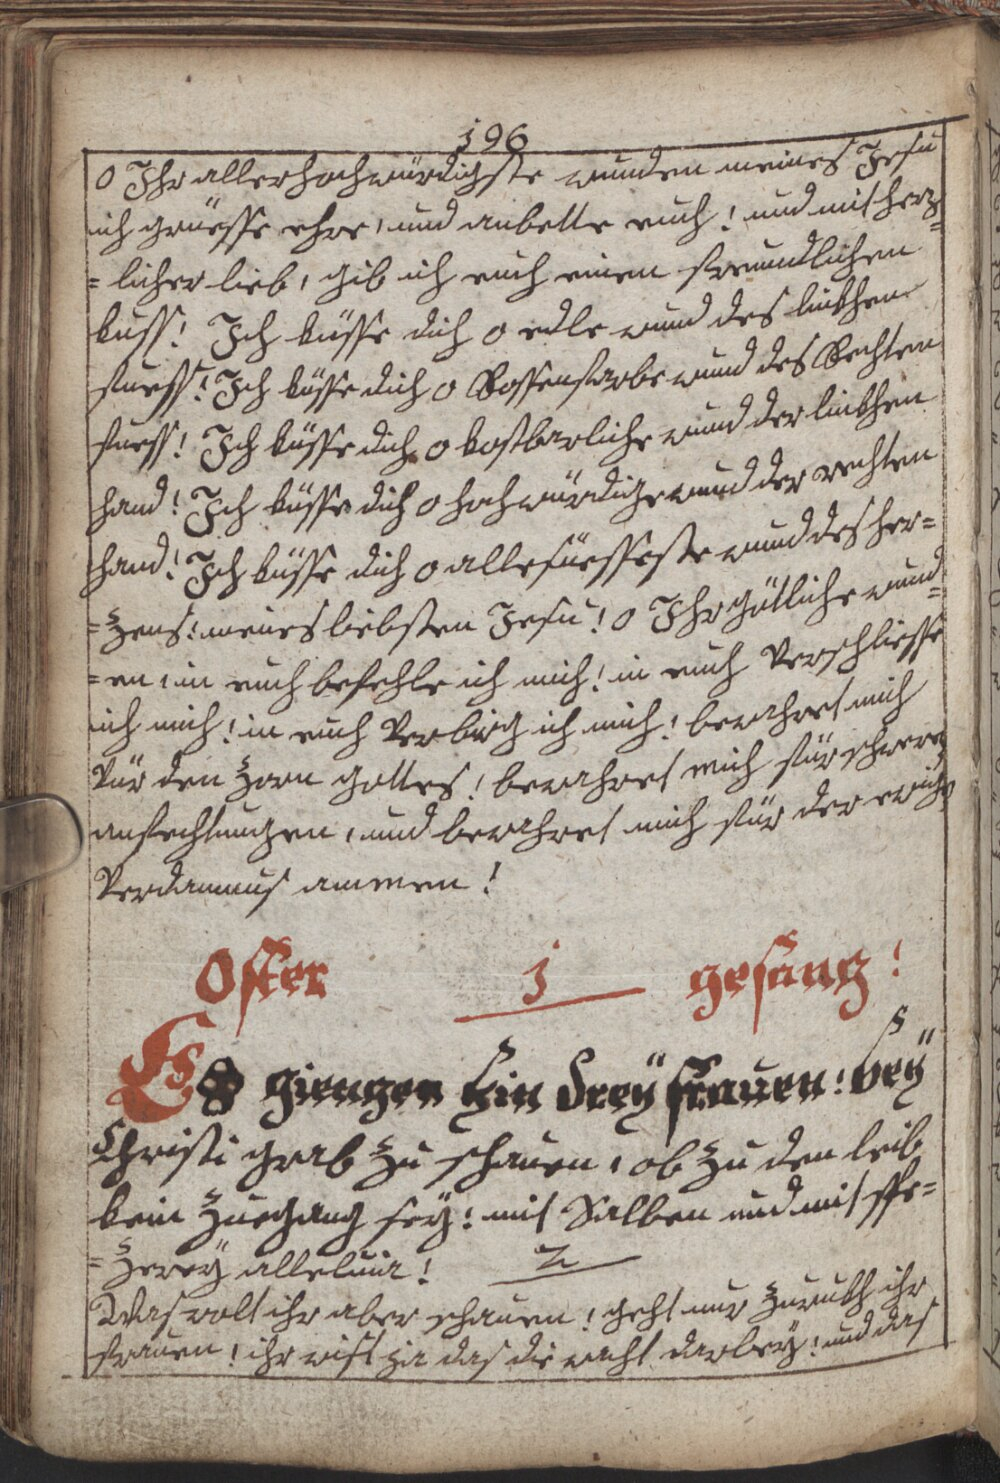 196
O Ihr allerhochwürdigste wunden meines Jesu
ich grüesse ehre, und anbette euch! und mit herz=
=licher lieb, gib ich euch einen freundlichen
kuss! Ich küsse dich o edle wund des linkhen
fuess! Ich küsse dich o Rossenfarbe wund des Rechten
fuess! Ich küsse dich o kostbarliche wund der linkhen
hand! Ich küsse dich o hochwürdige wund der rechten
hand! Ich küsse dich o allersüesseste wund des her=
=zens: meines liebsten Jesu! o Ihr götliche wund=
=en, in euch befehle ich mich! in euch verschliesse
ich mich! in euch verbirg ich mich! bewahret mich
vür den zorn gottes! bewahret mich für schwere
anfechtungen, und bewahret mich für der ewige
verdamnus ammen!
Oster 1 gesang!
Es giengen hin drey frauen: bey
Christi grab zu schauen, ob zu den leib
kein zuegang sey: mit Salben und mit spe=
=zerey alleluia! 2
Was wolt ihr aber schauen! geht nur zurukh ihr
frauen! ihr wist ja das die wacht darbey! und das